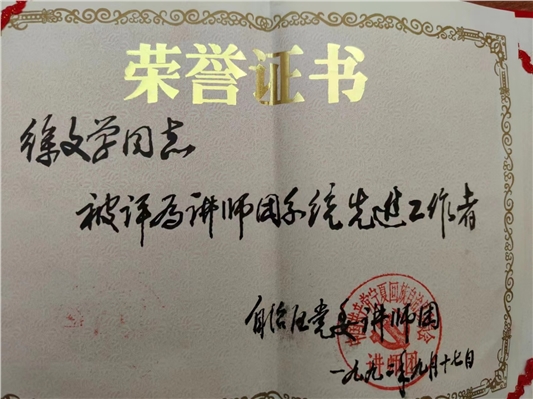 荣誉证书
徐文学同志
被评为讲师团系统先进工作者
自治区党委讲师团
讲师团
一九九二年九月十七日